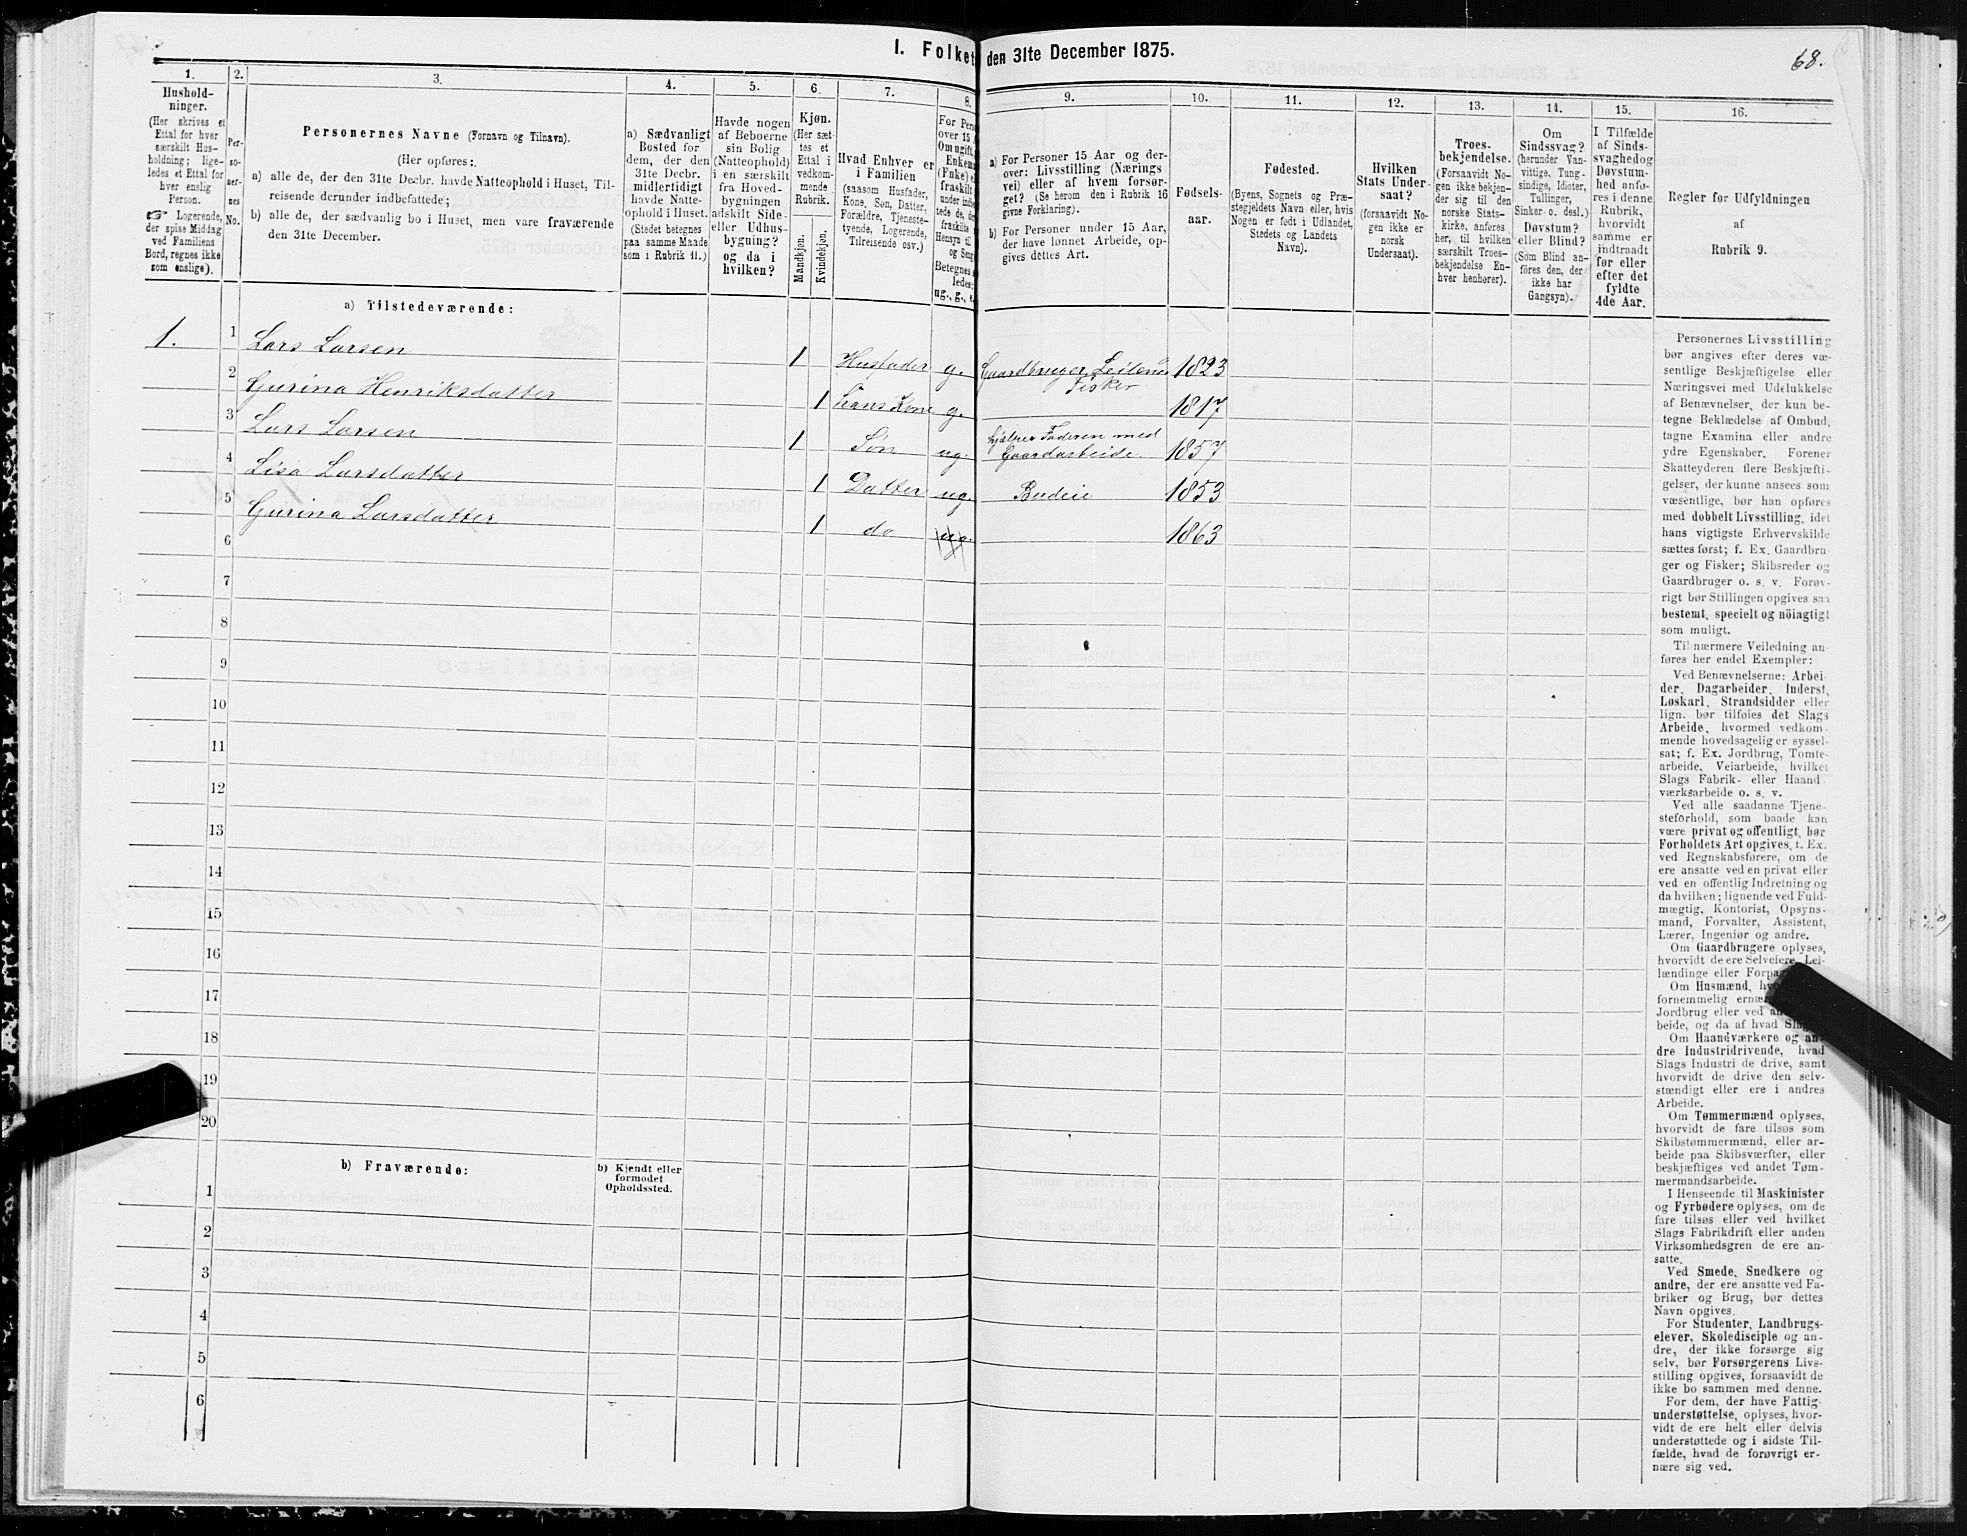 I. Folket
den 31te December 1875.
68.
1.
Hushold-
ninger.
(Her skrives et
Ettal for hver
særskilt Hus-
holdning; lige-
ledes et Ettal for
hver enslig
Person.
☞ Logerende,
der spise Middag
ved Familiens
Bord, regnes ikke
som enslige).
2.
Per-
so-
ner-
nes
No.
3.
Personernes Navne (Fornavn og Tilnavn).
(Her opføres:
a) alle de, der den 31te Decbr. havde Natteophold i Huset, Til-
reisende derunder indbefattede;
b) alle de, der sædvanlig bo i Huset, men vare fraværende
den 31te December.
4.
a) Sædvanligt
Bosted for
dem, der den
31te Decbr.
midlertidigt
havde Natte-
ophold i Huset.
(Stedet betegnes
paa samme Maade
som i Rubrik 11.)
5.
Havde nogen
af Beboerne
sin Bolig
(Natteophold)
i en særskilt
fra Hoved-
bygningen
adskilt Side-
eller Udhus-
bygning?
og da i
hvilken?
6.
Kjøn.
(Her sæt-
tes et
Ettal i
vedkom-
mende
Rubrik.
Mandkjøn.
Kvindekjøn.
7.
Hvad Enhver er
i Familien
(saasom Husfader,
Kone, Søn, Datter,
Forældre, Tjeneste-
tyende, Logerende,
Tilreisende osv.)
8.
For Pers
over 15 A
Om ugift,
Enkem
(Enke) e
fraskilt
under indbe
tede de, de
fraskilte
Hensyn til
og Seng
Betegnes
ledes:
ug., g., e.
9.
a) For Personer 15 Aar og der-
over: Livsstilling (Nærings-
vei) eller af hvem forsør-
get? (Se herom den i Rubrik 16
givne Forklaring).
b) For Personer under 15 Aar,
der have lønnet Arbeide, op-
gives dettes Art.
10.
Fødsels-
aar.
11.
Fødested.
(Byens, Sognets og Præ-
stegjeldets Navn eller, hvis
Nogen er født i Udlandet,
Stedets og Landets
Navn).
12.
Hvilken
Stats Under-
saat?
(forsaavidt No-
gen ikke er
norsk
Undersaat).
13.
Troes-
bekjendelse.
(Forsaavidt No-
gen ikke bekjen-
der sig til den
norske Stats-
kirke, anføres
her, til hvilken
særskilt Troes-
bekjendelse En-
hver henhører).
14.
Om
Sindssvag?
(herunder Van-
vittige, Tung-
sindige, Idioter,
Tullinger,
Sinker o. desl.)
Døvstum?
eller Blind?
(Som Blind an-
føres den, der
ikke har
Gangsyn).
15.
I Tilfælde
af Sinds-
svaghed og
Døvstum-
hed anfø-
res i denne
Rubrik,
hvorvidt
samme er
indtraadt
før eller
efter det
fyldte
4de Aar.
16.
Regler for Udfyldningen
af
Rubrik 9.
a) Tilstedeværende:
1. 1 Lars Larsen 1 Husfader g. Gaardbruger Leilend Fisker 1823
2 Gurina Henriksdatter 1 hans Kone g. 1817
3 Lars Larsen 1 Søn ug. hjælper Faderen med Gaardarbeide. 1857
4 Lisa Larsdatter 1 Datter ug. Budeie 1853
5 Gurina Larsdatter 1 do ug. 1863
6
7
8
9
10
11
12
13
14
15
16
17
18
19
20
b) Fraværende:
b) Kjendt eller
formodet
Opholdssted.
1
2
3
4
5
6
Personernes Livsstilling
bør angives efter deres væ-
sentlige Beskjæftigelse eller
Næringsvei med Udelukkelse
af Benævnelser, der kun be-
tegne Beklædelse af Ombud,
tagne Examina eller andre
ydre Egenskaber. Forener
Skatteyderen flere Beskjæfti-
gelser, der kunne ansees som
væsentlige, bør han opføres
med dobbelt Livsstilling, idet
hans vigtigste Erhvervskilde
sættes først; f. Ex. Gaardbru-
ger og Fisker; Skibsreder og
Gaardbruger o. s. v. Forøv-
rigt bør Stillingen opgives saa
bestemt, specielt og nöiagtigt
som muligt.
Til nærmere Veiledning an-
føres her endel Exempler:
Ved Benævnelserne: Arbei-
der, Dagarbeider, Inderst,
Løskarl, Strandsidder eller
lign. bør tilføies det Slags
Arbeide, hvormed vedkom-
mende hovedsagelig er syssel-
sat; f. Ex. Jordbrug, Tomte-
arbeide, Veiarbeide, hvilket
Slags Fabrik- eller Haand-
værksarbeide o. s. v.
Ved alle saadanne Tjene-
steforhold, som baade kan
være privat og offentligt, bør
Forholdets Art opgives, t. Ex.
ved Regnskabsførere, om de
ere ansatte ved en privat eller
ved en offentlig Indretning og
da hvilken; lignende ved Fuld-
mægtig, Kontorist, Opsyns-
mand, Forvalter, Assistent,
Lærer, Ingeniør og andre.
Om Gaardbrugere oplyses,
hvorvidt de ere Selveiere, Lei-
lændinge eller Forpa
Om Husmænd, hvo
fornemmelig ernæ
Jordbrug eller ved an
beide, og da af hvad Slag
Om Haandværkere og an-
dre Industridrivende, hvad
Slags Industri de drive, samt
hvorvidt de drive den selv-
stændigt eller ere i andres
Arbeide.
Om Tømmermænd oplyses,
hvorvidt de fare tilsøs som
Skibstømmermænd, eller ar-
beide paa Skibsværfter, eller
beskjæftiges ved andet Tøm-
mermandsarbeide.
I Henseende til Maskinister
og Fyrbødere oplyses, om de
fare tilsøs eller ved hvilket
Slags Fabrikdrift eller anden
Virksomhedsgren de ere an-
satte.
Ved Smede, Snedkere og
andre, der ere ansatte ved Fa-
briker og Brug, bør dettes
Navn opgives.
For Studenter, Landbrugs-
elever, Skoledisciple og an-
dre, der ikke forsørge sig
selv, bør Forsørgerens Livs-
stilling opgives, forsaavidt de
ikke bo sammen med denne.
For dem, der have Fattig-
understøttelse, oplyses, hvor-
vidt de ere helt eller delvis
understøttede og i sidste Til-
fælde, hvad de forøvrigt er-
nære sig ved.